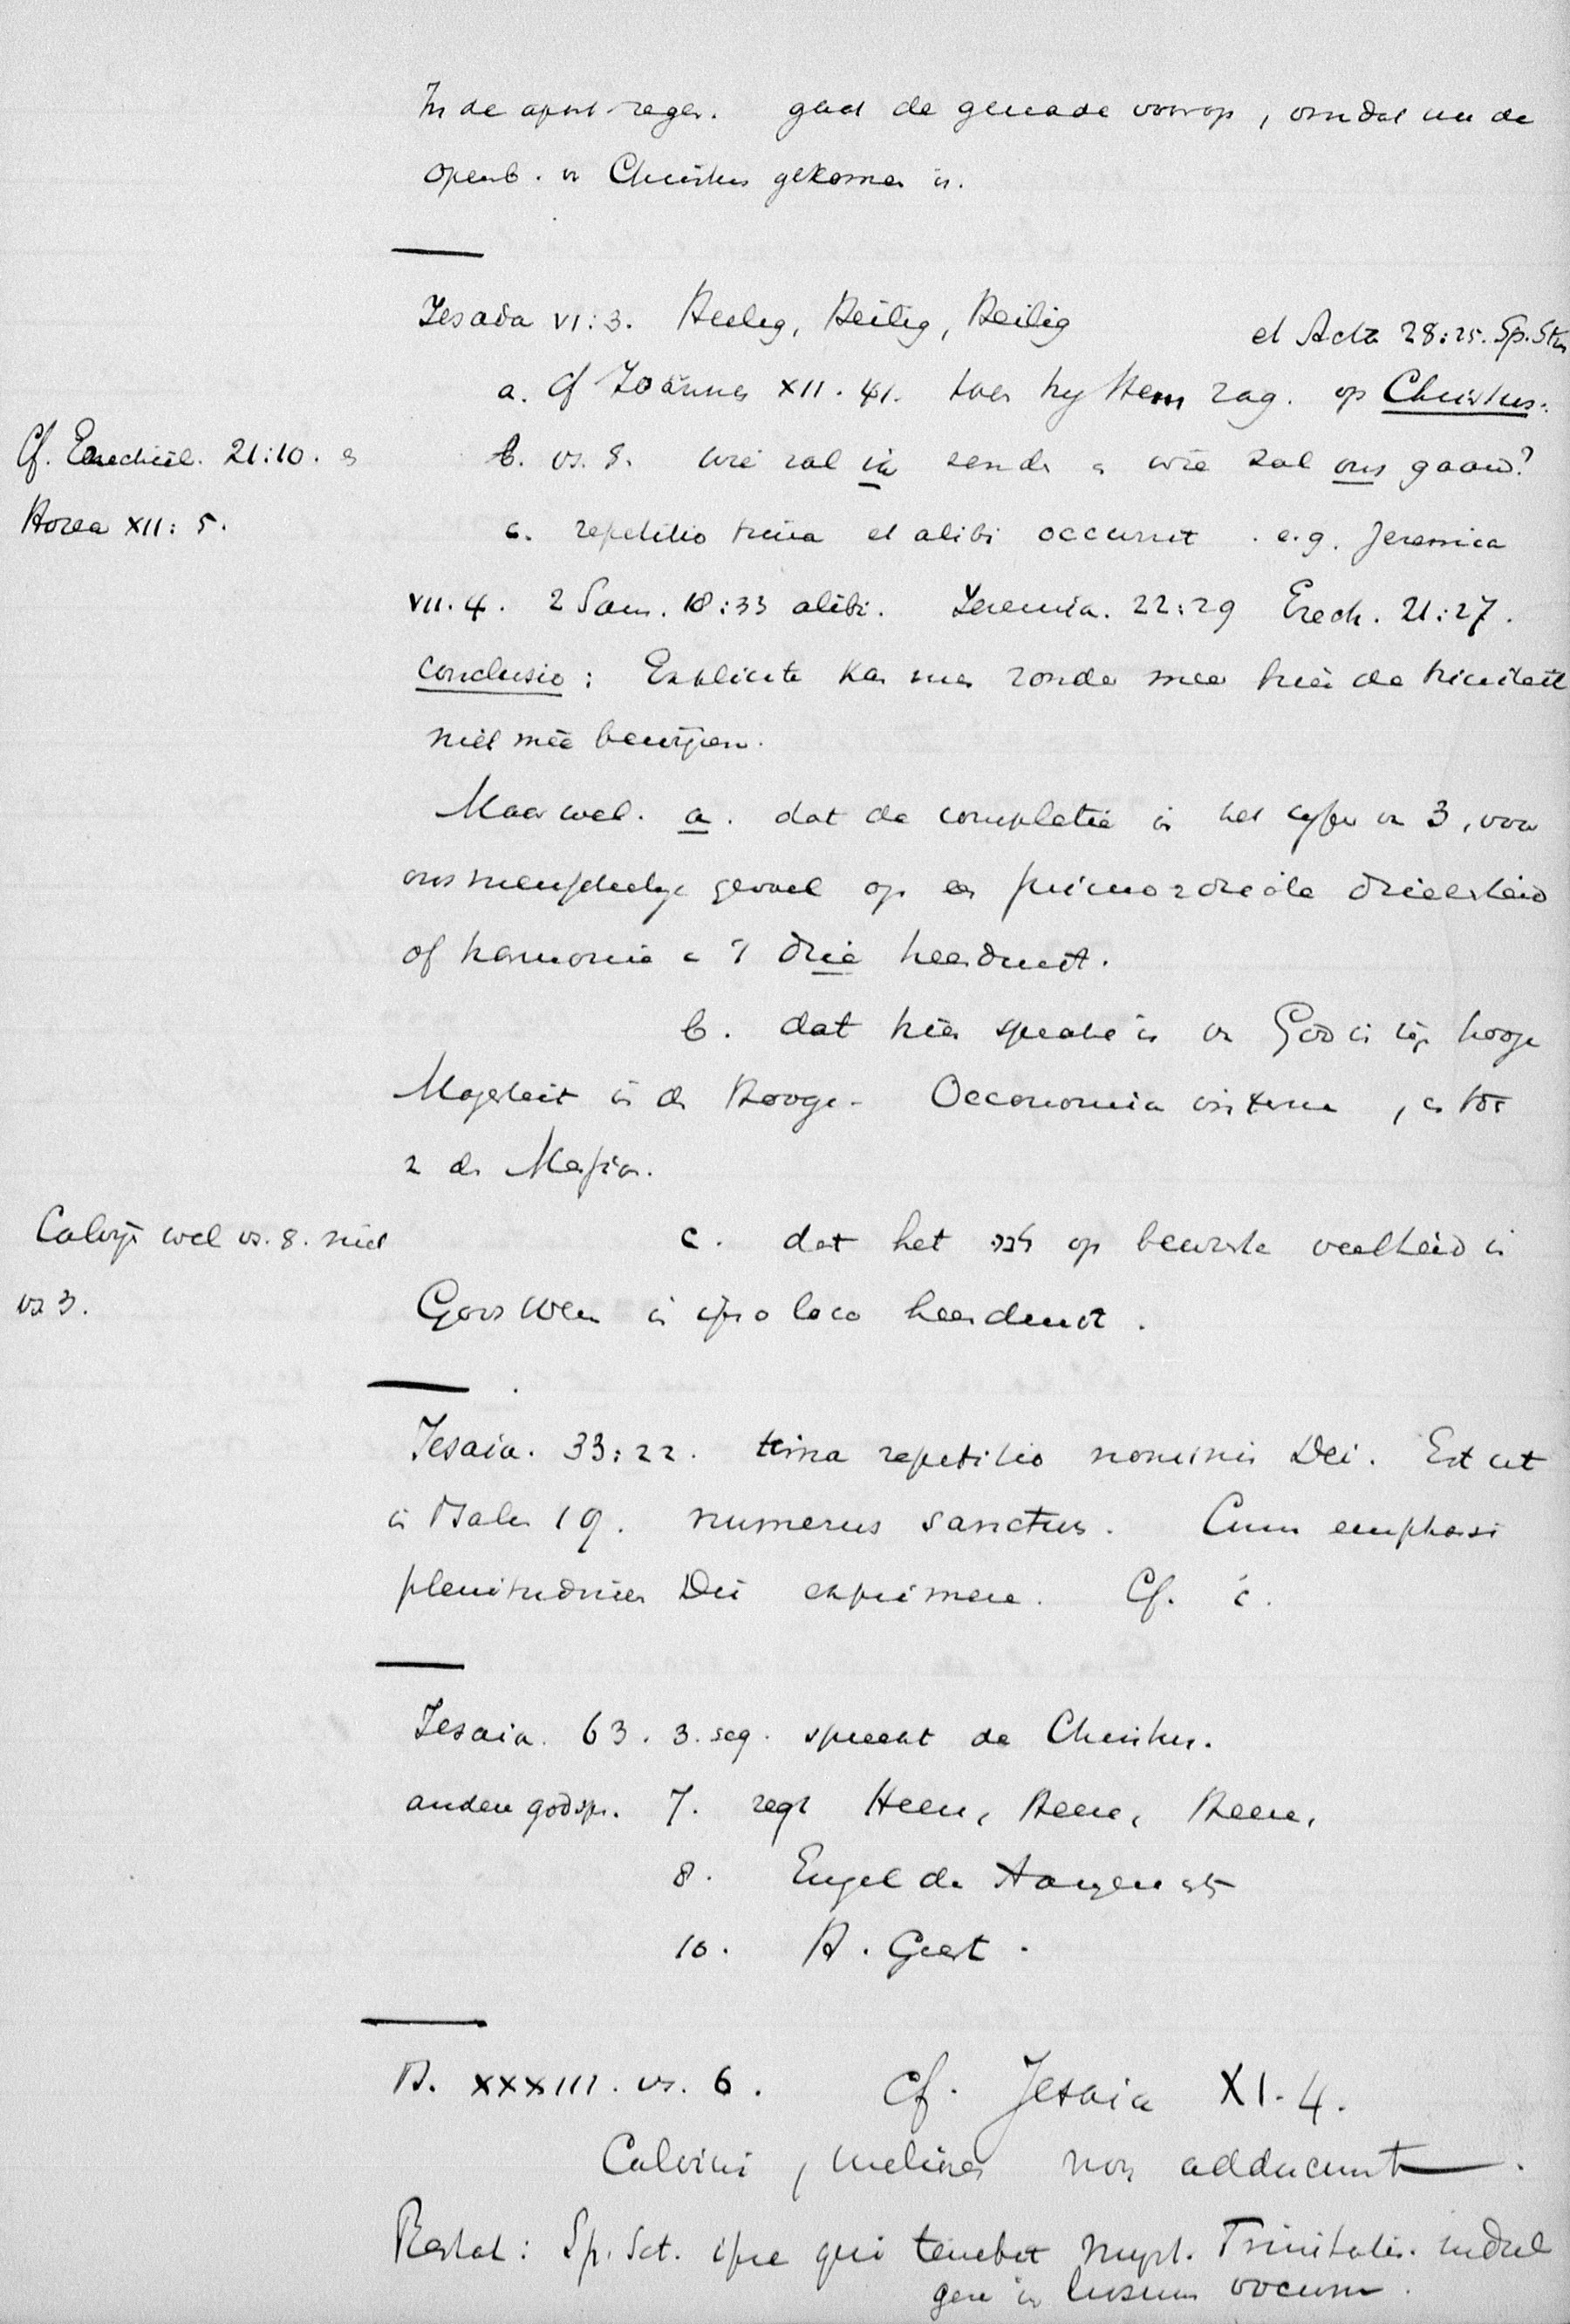 In de apost. zegen. gaat de genade voorop, omdat nu de
openb. v Christus gekomen is.
Jesaia VI:3. Heilig, Heilig, Heilig
et Acta 28:25. Sp. Stus
a. cf Joannes XII. 41. toen hy Hem zag. op Christus.
Cf. Ezechiël. 21:10. en
b. vs. 8. wie zal ik zende en wie zal ons gaan?
Hosea XII: 5.
c. repetitio trina et alibi occurrit. e.g. Jeremia
VII. 4. 2 Sam. 18:33 alibi. Jeremia. 22:29 Ezech. 21:27.
conclusio: Explicite kan men zonder meer hier de triniteit
niet mee bewijzen.
Maar wel. a. dat de completie in het cyfer van 3, voor
ons menschelyk gevoel op een primordiale drieerheid
of harmonie in drie heenduidt.
b. dat hier sprake is van God in zijn hooge
Majesteit in den Hooge. Oeconomia interna, en tot
de Messias.
Calvijn wel vs. 8. niet
c. dat het op bewuste veelheid in
vs 3.
Gods Wezen in ipso loco heenduidt.
Jesaia. 33:22. trina repetitio nominis Dei. Est ut
in Psalm 19. numerus sanctus. Cum emphasi
plenitudinem Dei exprimere. Cf. c.
Jesaia. 63. 3. seq. spreekt de Christus.
andere godspr. 7. zegt Heere, Heere, Heere,
8. Engel des Aangezichts
10. H. Geest.
Ps. XXXIII. vs. 6. Cf. Jesaia XI. 4.
Calvini, melius non adducunt.
Restat: Sp. Sct. ipse qui tenebat myst. Trinitatis. indul
gere in lusum vocum.